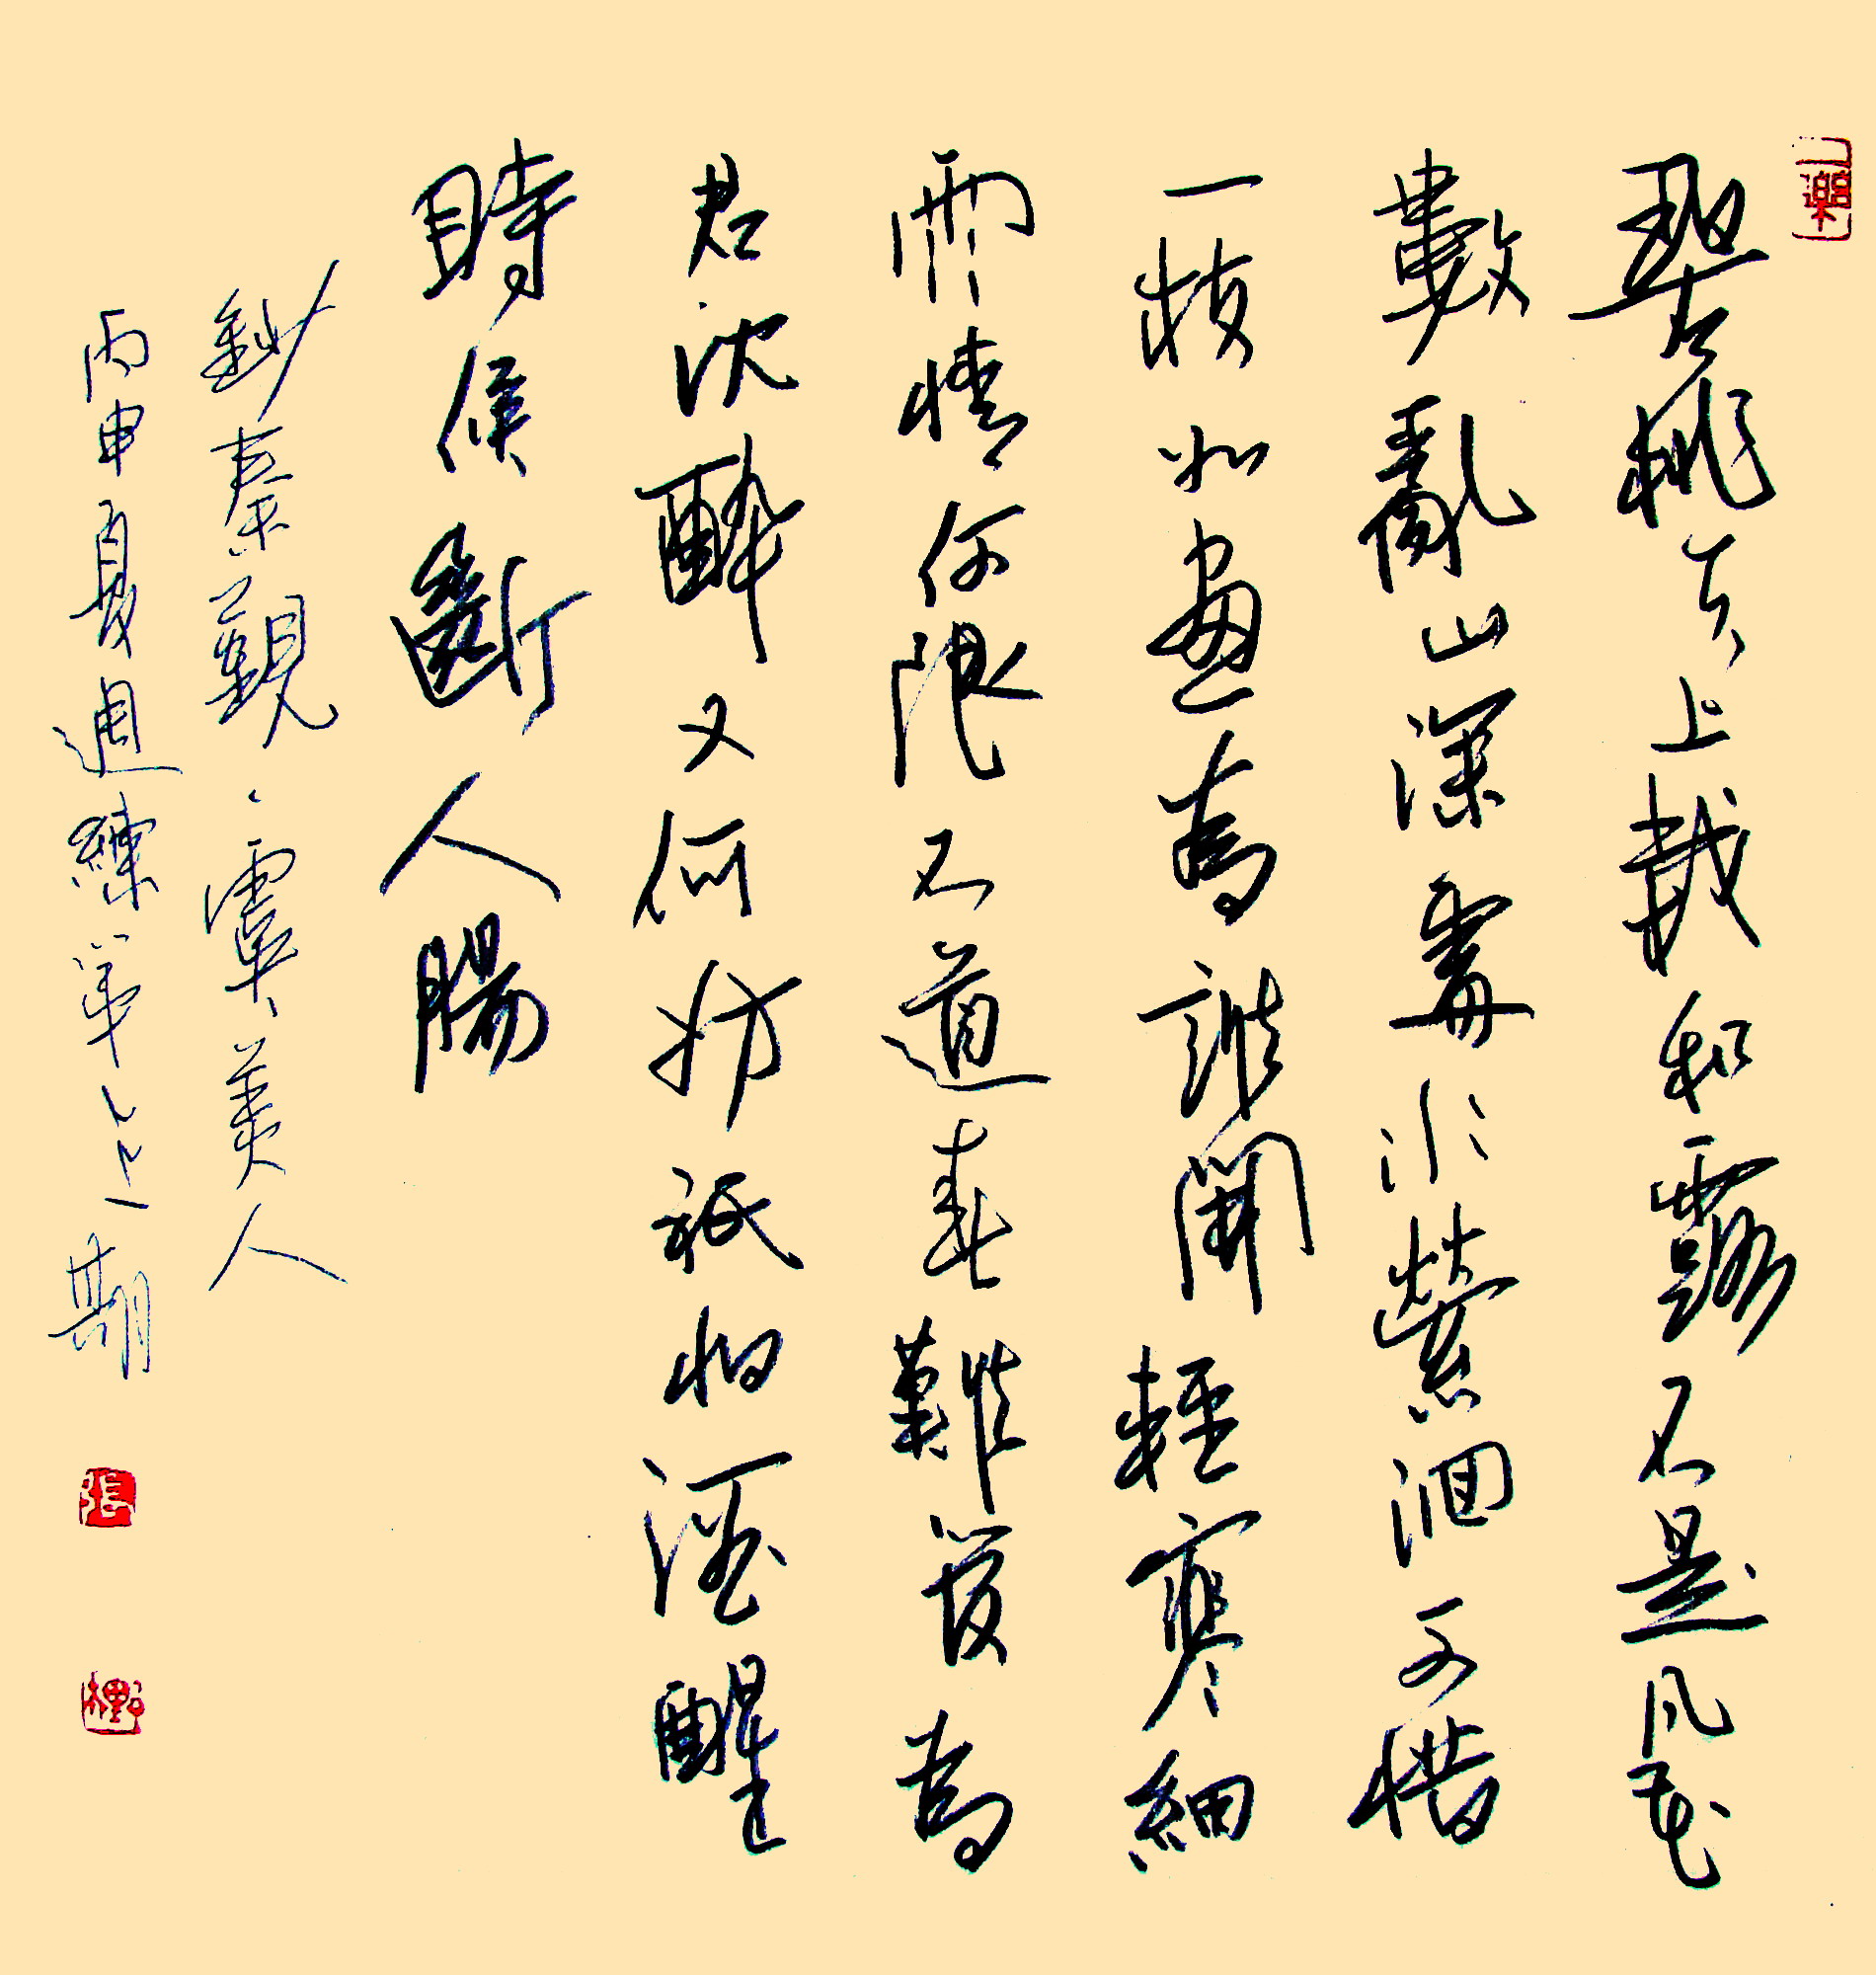 碧桃天上栽和露不是凡花
數亂山深處水縈洄可惜
一枝如畫為誰開輕寒細
雨情何限不道春難管為
君沈醉又何妨祇怕酒醒
時候斷人腸
鈔秦觀、虞美人
丙申夏週練第期
張